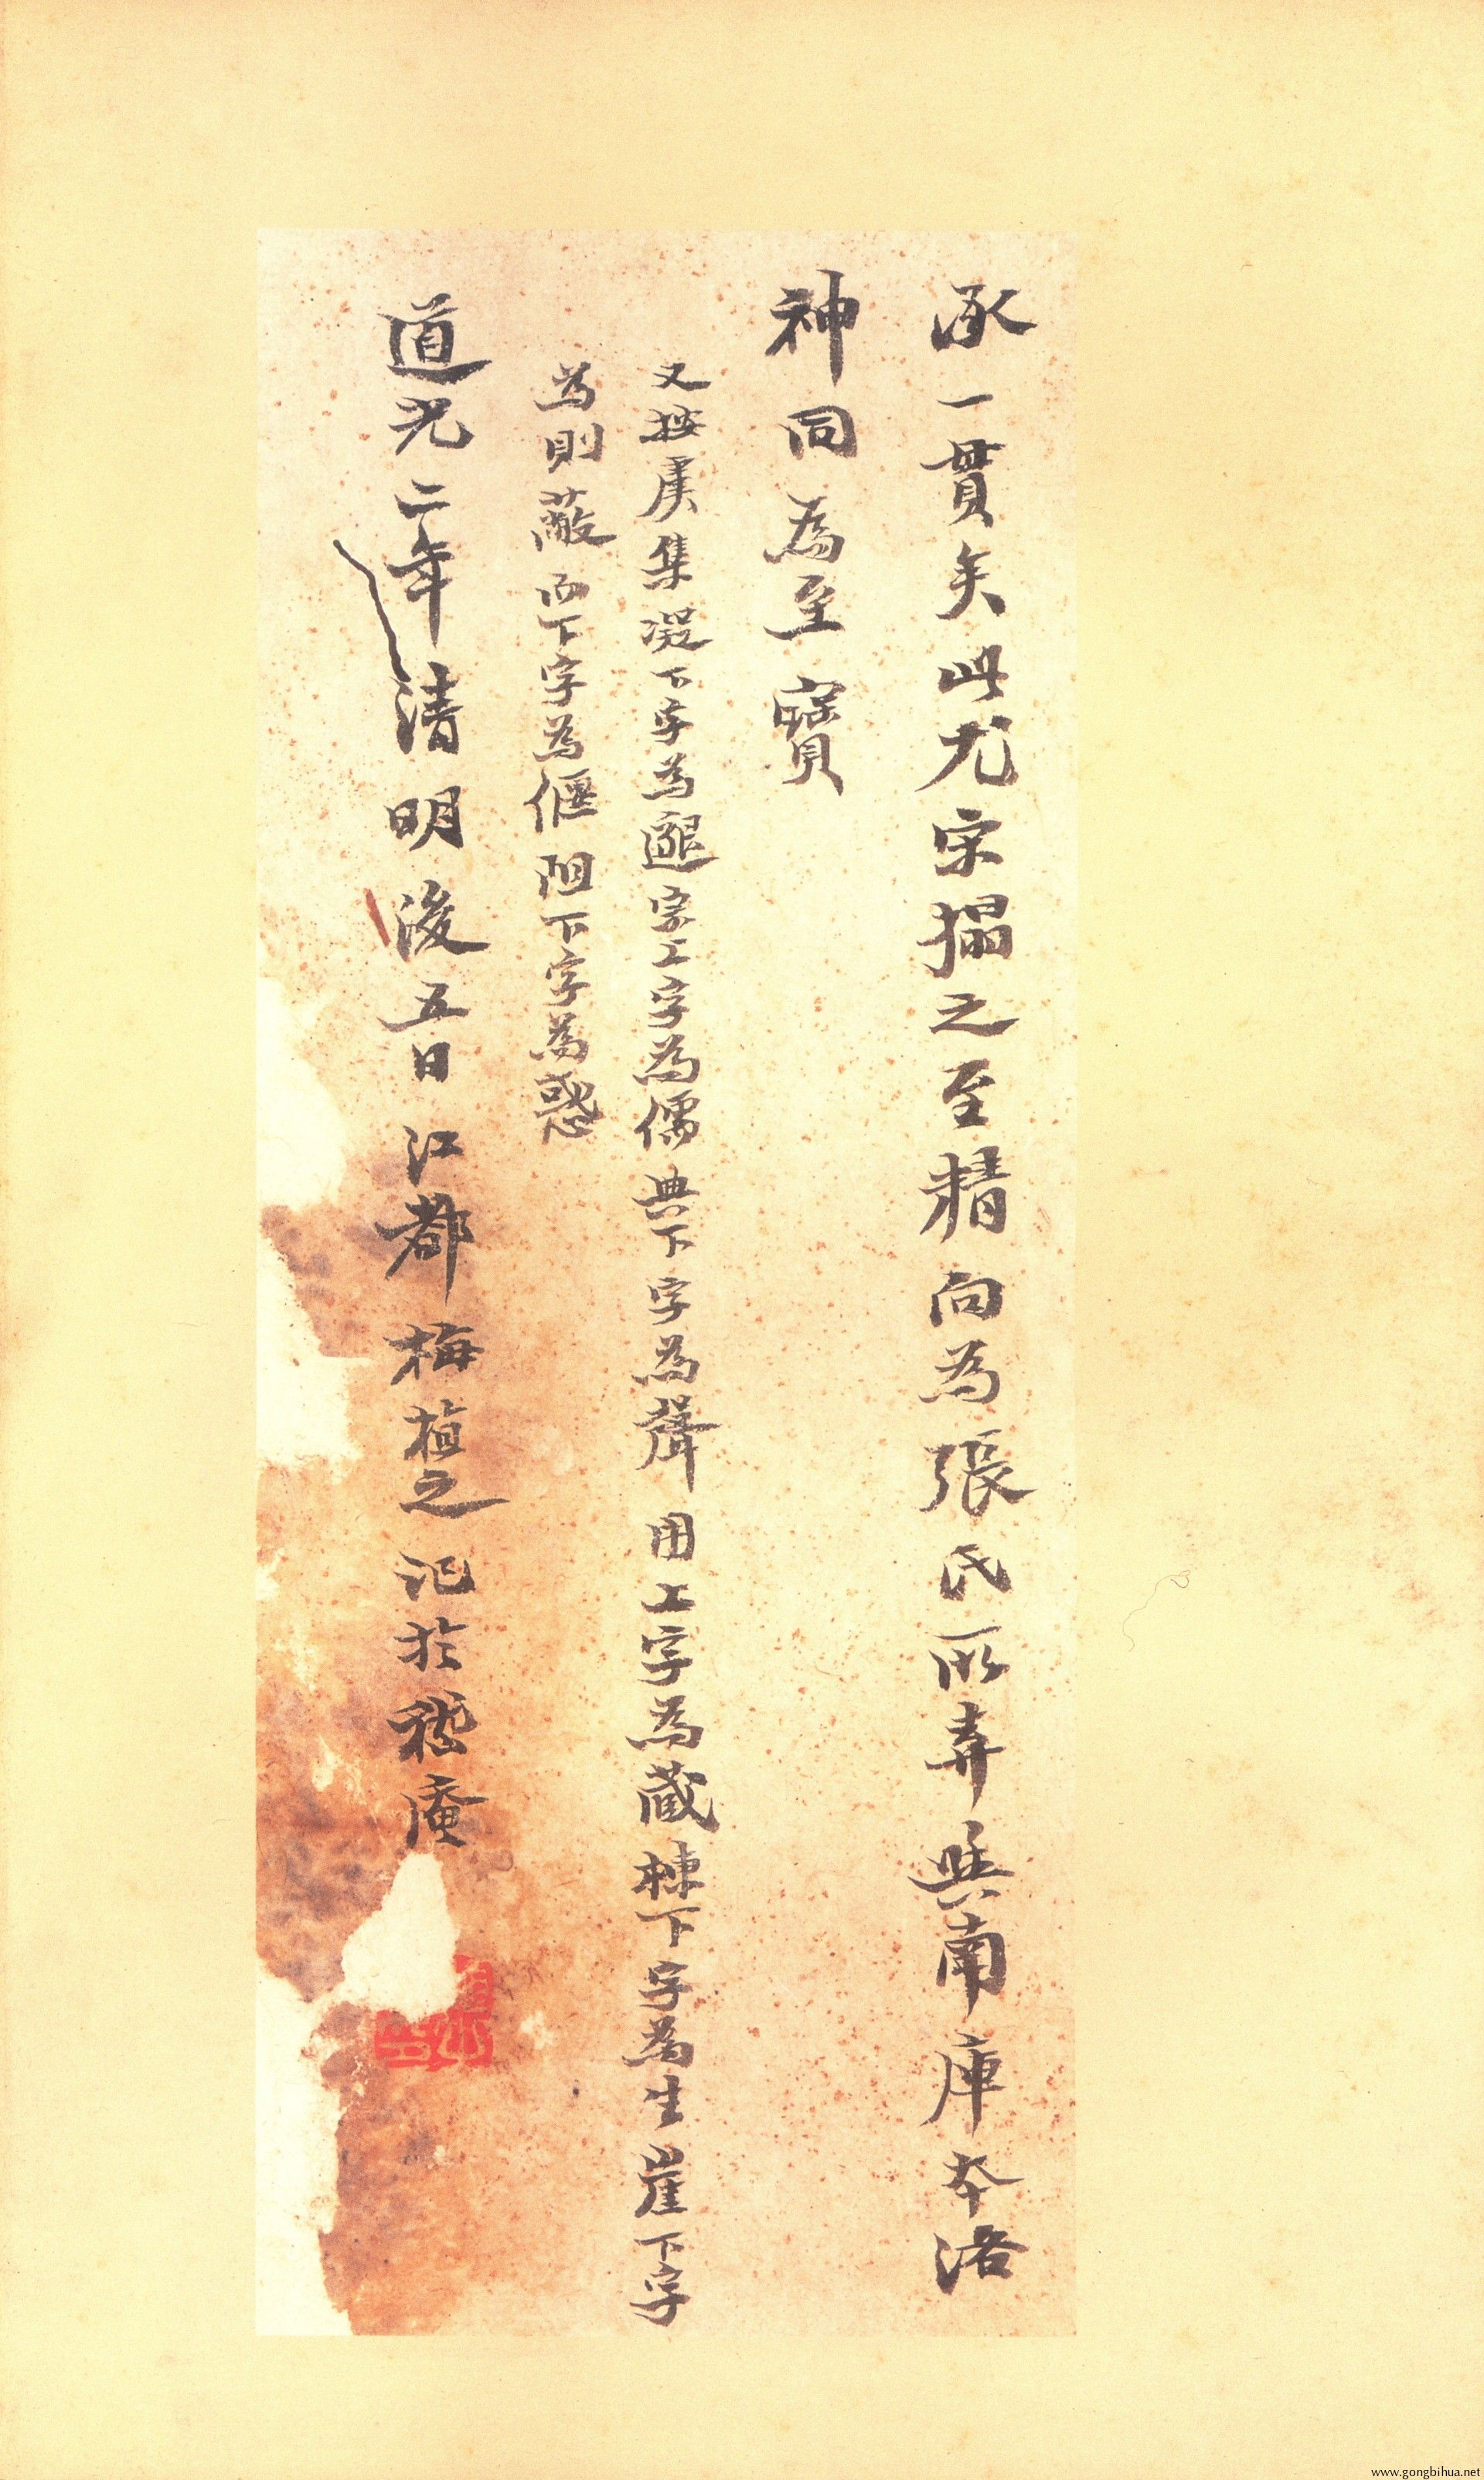 承一貫矣此尤宋搨之至精向為張氏所弆與南庫本洛
神同為至寶
又按虞集凝下字為邈字上字為儒典下字為聲用上字為蔵棘下字為生崖下字
為則蔽而下字為偃阻下字為惑
道光二年清明後五日江都梅植之記於嵇庵
www.gongbihua.net